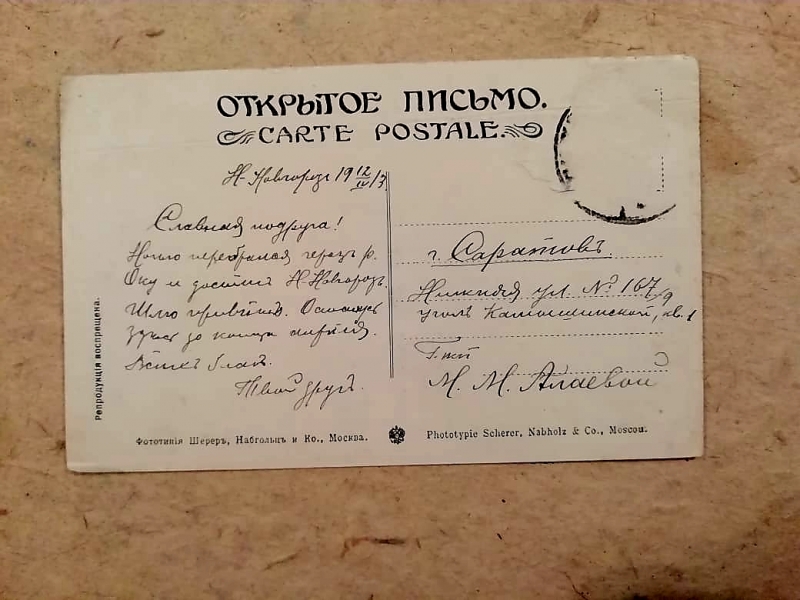 ОТКРЫТОЕ ПИСЬМО.
CARTE POSTALE.
Н-Новгородъ 19 12/IV 13
Славная подруга!
Ночью перебрался черезъ р.
Оку и достигъ Н-Новгородъ.
Шлю приветъ. Останусь
здесь до конца апреля.
Всехъ благ.
Твой другъ.
г. Саратовъ
Нижняя ул. № 167/9
уголъ Камышинской, кв. 1
Г-жѣ
М. М. Алаевой
Репродукція воспрещена.
Фототипія Шереръ, Набгольцъ и Ко., Москва.
Phototypie Scherer, Nabholz & Co., Moscou.